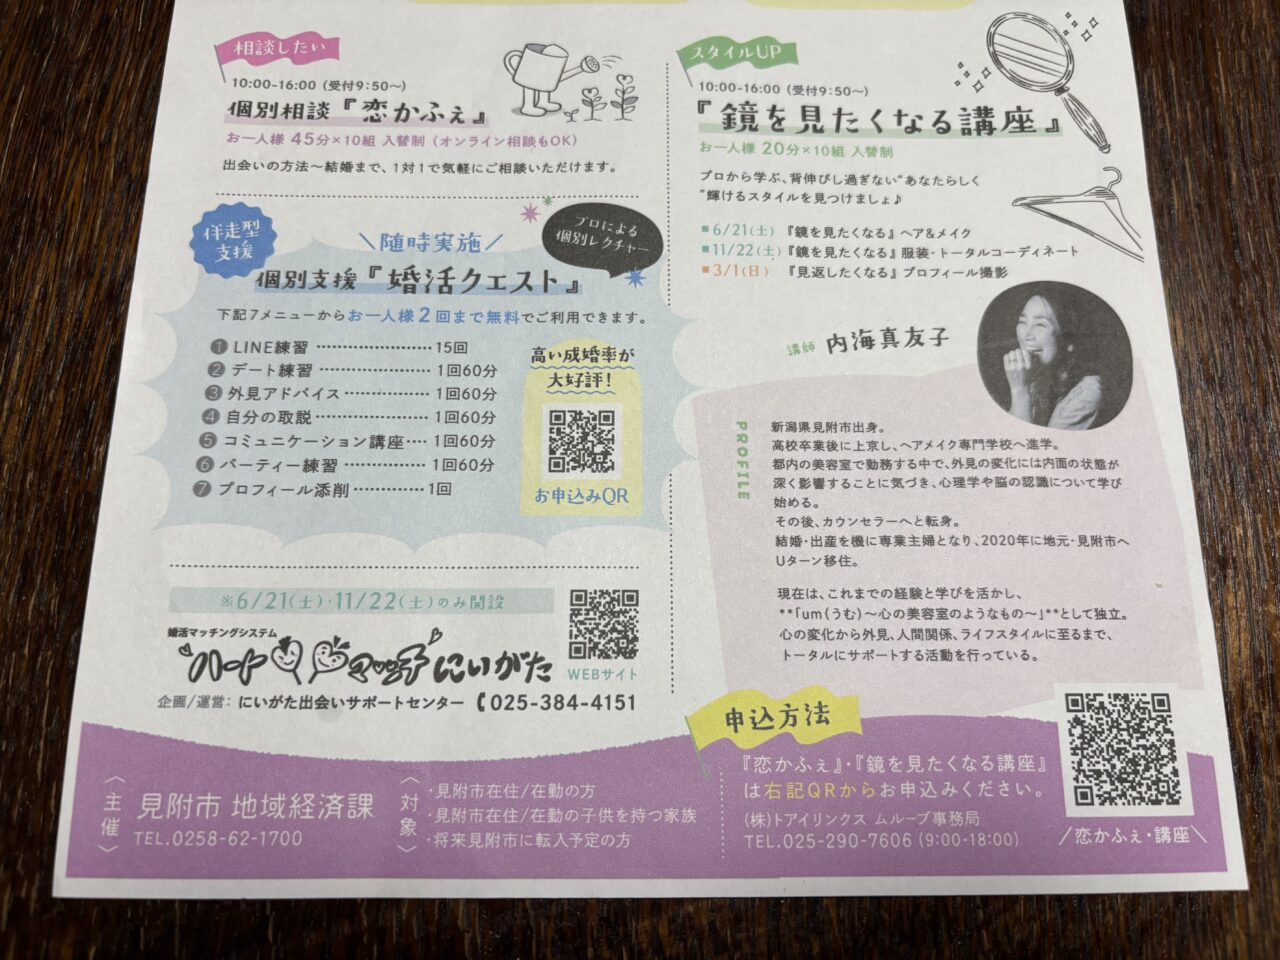 相談したい
10:00-16:00(受付9:50〜)
個別相談『恋かふぇ』
お一人様 45分×10組 入替制(オンライン相談もOK)
出会いの方法〜結婚まで、1対1で気軽にご相談いただけます。
伴走型
支援
\随時実施/
プロによる
個別レクチャー
個別支援『婚活クエスト』
下記7メニューからお一人様2回まで無料でご利用できます。
❶ LINE練習 ………………… 15回
❷ デート練習 ………………… 1回60分
❸ 外見アドバイス …………… 1回60分
❹ 自分の取説 ………………… 1回60分
❺ コミュニケーション講座…… 1回60分
❻ パーティー練習 …………… 1回60分
❼ プロフィール添削 ………… 1回
高い成婚率が
大好評!
お申込みQR
※6/21(土)・11/22(土)のみ開設
婚活マッチングシステム
ハートマッチにいがた
WEBサイト
企画/運営:にいがた出会いサポートセンター 025-384-4151
スタイルUP
10:00-16:00(受付9:50〜)
『鏡を見たくなる講座』
お一人様 20分×10組 入替制
プロから学ぶ、背伸びし過ぎない“あなたらしく
”輝けるスタイルを見つけましょ♪
■6/21(土)『鏡を見たくなる』ヘア&メイク
■11/22(土)『鏡を見たくなる』服装・トータルコーディネート
■3/1(日)『見返したくなる』プロフィール撮影
講師 内海真友子
PROFILE
新潟県見附市出身。
高校卒業後に上京し、ヘアメイク専門学校へ進学。
都内の美容室で勤務する中で、外見の変化には内面の状態が
深く影響することに気づき、心理学や脳の認識について学び
始める。
その後、カウンセラーへと転身。
結婚・出産を機に専業主婦となり、2020年に地元・見附市へ
Uターン移住。
現在は、これまでの経験と学びを活かし、
**「um(うむ)〜心の美容室のようなもの〜」**として独立。
心の変化から外見、人間関係、ライフスタイルに至るまで、
トータルにサポートする活動を行っている。
〈主催〉
見附市 地域経済課
TEL.0258-62-1700
〈対象〉
・見附市在住/在勤の方
・見附市在住/在勤の子供を持つ家族
・将来見附市に転入予定の方
申込方法
『恋かふぇ』・『鏡を見たくなる講座』
は右記QRからお申込みください。
(株)トアイリンクス ムルーブ事務局
TEL.025-290-7606(9:00-18:00)
\恋かふぇ・講座/